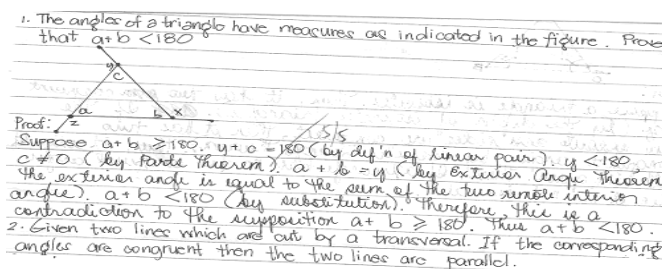 1. The angles of a triangle have measures as indicated in the figure. Prove
that a+b <180
y
c
a b x
z
Proof: 5/5
Suppose a+b ≥ 180. y+c =180 (by def'n of linear pair). y <180,
c ≠ 0 (by Parts Theorem). a + b = y (by Exterior Angle Theorem
the exterior angle is equal to the sum of the two remote interior
angles). a+b <180 (by substitution). Therefore, this is a
contradiction to the supposition a+ b ≥ 180. Thus a+b <180.
2. Given two lines which are cut by a transversal. If the corresponding
angles are congruent then the two lines are parallel.